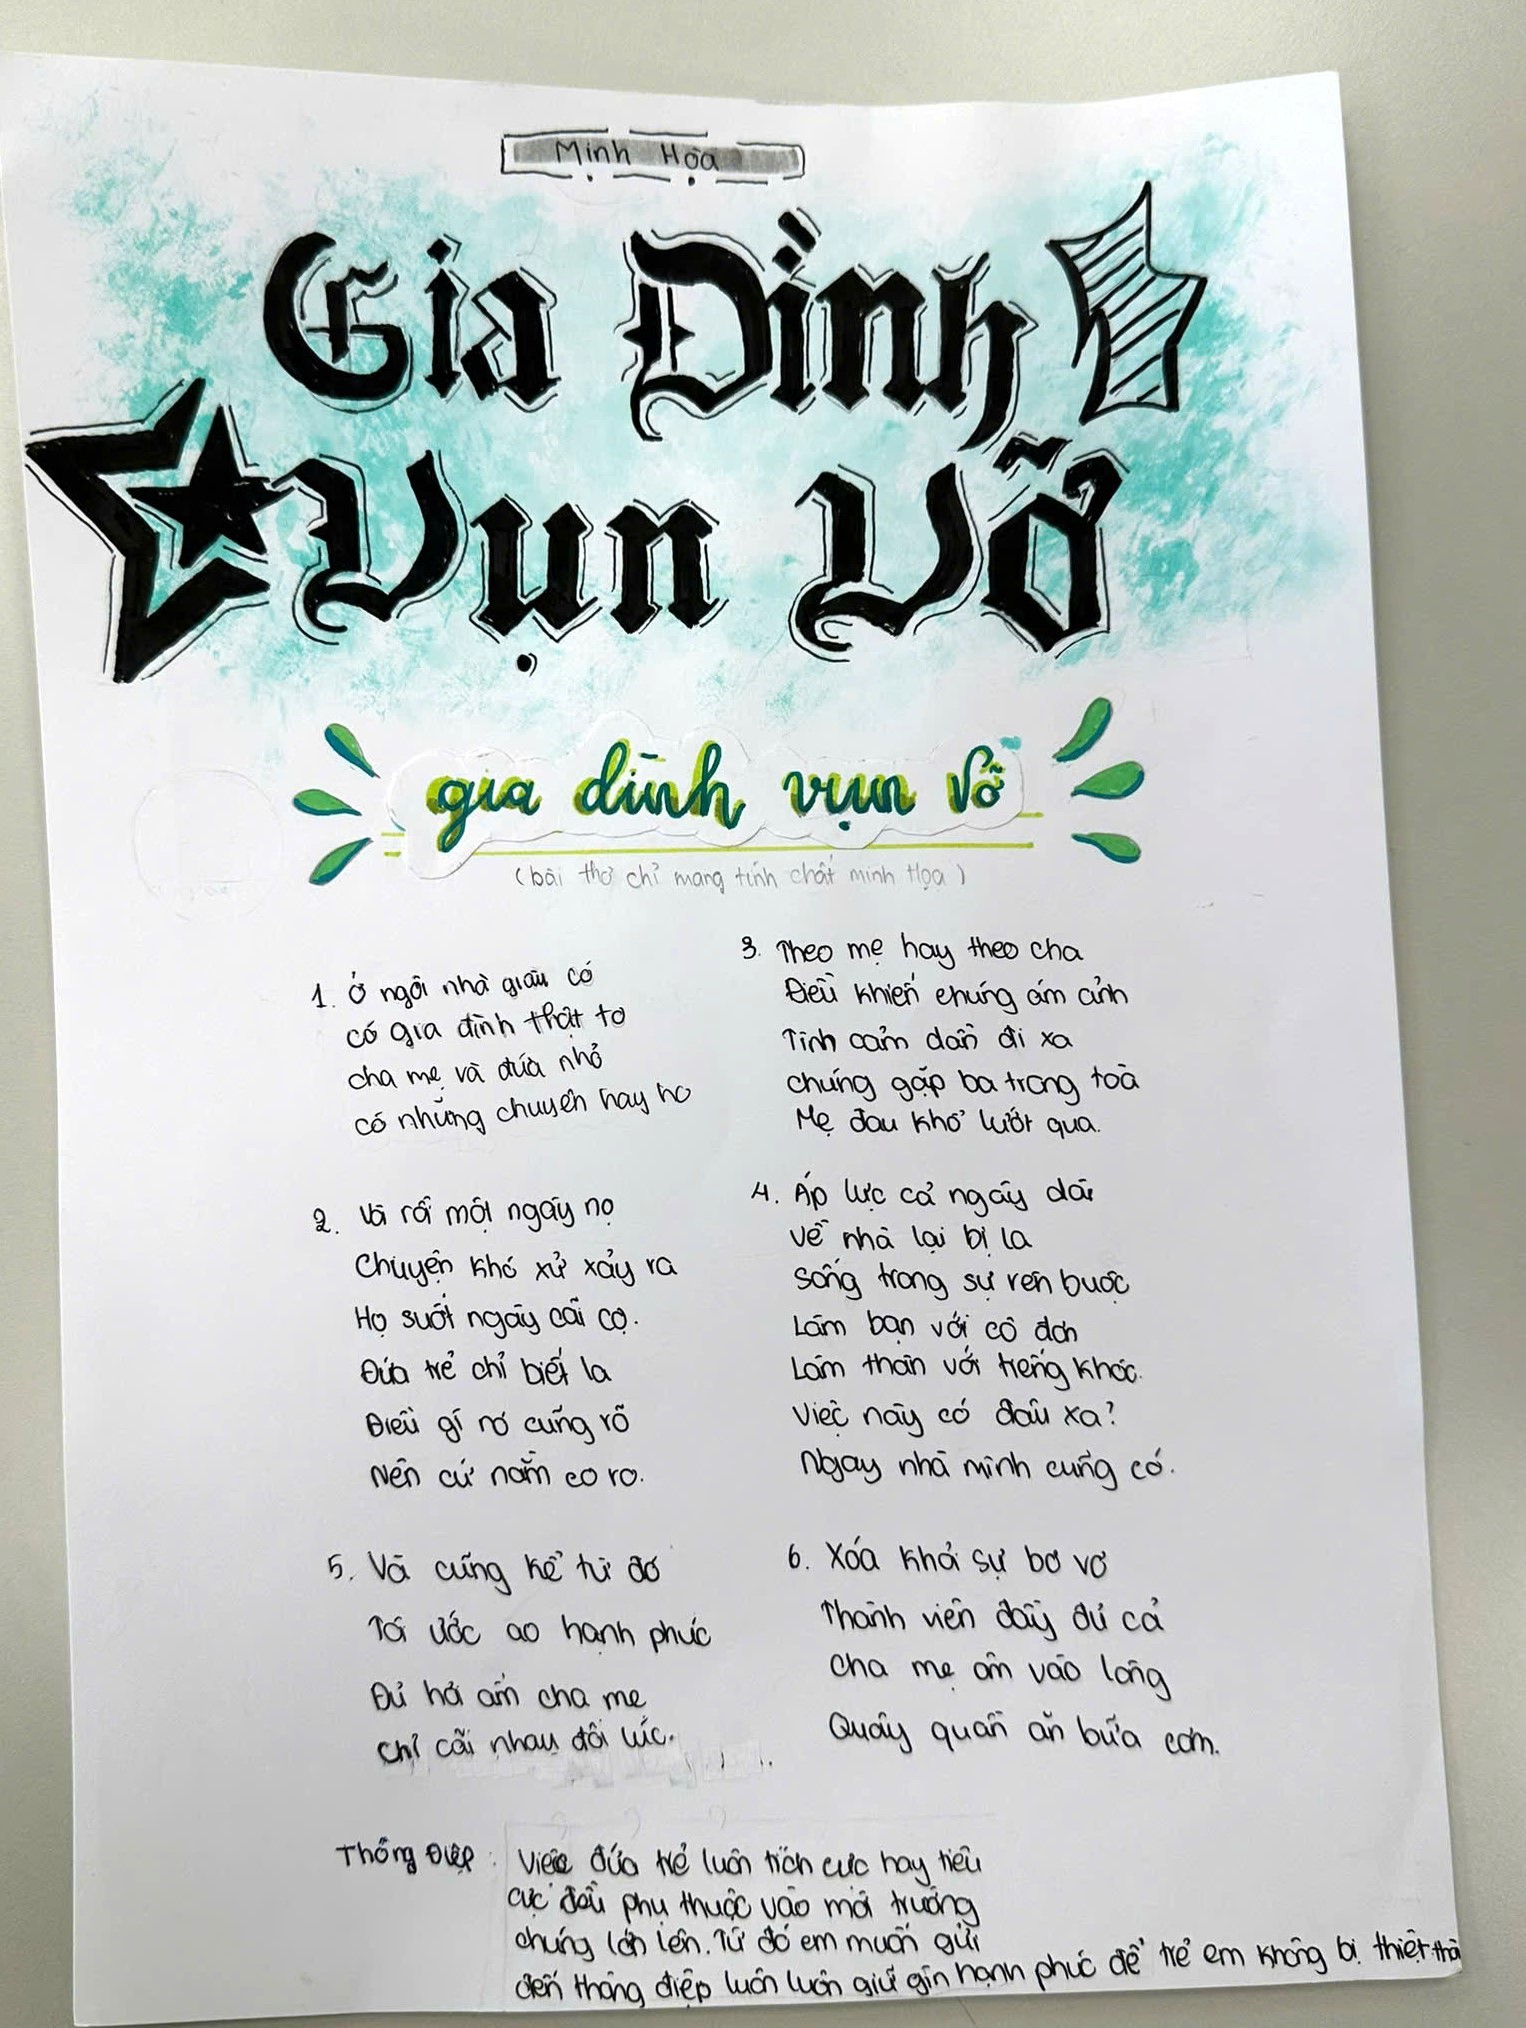 Minh Họa
Gia Đình
Vụn Vỡ
gia đình vụn vỡ
(bài thơ chỉ mang tính chất minh họa)
1. Ở ngôi nhà giàu có
có gia đình thật to
cha mẹ và đứa nhỏ
có những chuyện hay ho
2. Và rồi một ngày nọ
Chuyện khó xử xảy ra
Họ suốt ngày cãi cọ.
Đứa trẻ chỉ biết la
Điều gì nó cũng rõ
Nên cứ nằm co ro.
3. Theo mẹ hay theo cha
Điều khiến chúng ám ảnh
Tình cảm dần đi xa
chúng gặp ba trong toà
Mẹ đau khổ lướt qua.
4. Áp lực cả ngày dài
Về nhà lại bị la
Sống trong sự ren buộc
Làm bạn với cô đơn
Làm thân với tiếng khóc.
Việc này có đâu xa?
Ngay nhà mình cũng có.
5. Và cũng kể từ đó
Tôi ước ao hạnh phúc
Đủ hơi ấm cha mẹ
Chỉ cãi nhau đôi lúc.
6. Xóa khỏi sự bơ vơ
Thành viên đầy đủ cả
Cha mẹ ôm vào lòng
Quây quần ăn bữa cơm.
Thông Điệp: Việc đứa trẻ luôn tích cực hay tiêu
cực đều phụ thuộc vào môi trường
chúng lớn lên. Từ đó em muốn gửi
đến thông điệp luôn luôn giữ gìn hạnh phúc để trẻ em không bị thiệt thòi